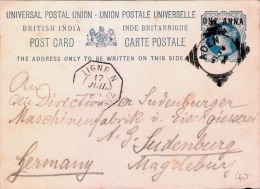 UNIVERSAL POSTAL UNION - UNION POSTALE UNIVERSELLE
BRITISH INDIA INDE BRITANNIQUE
ONE ANNA
POST CARD CARTE POSTALE
THE ADDRESS ONLY TO BE WRITTEN ON THIS SIDE
LIGNE N
17
JUIL
An
die Direction der Sudenburger
Maschinenfabrik & Eisengiesserei
A. G. Sudenburg
Germany Magdeburg